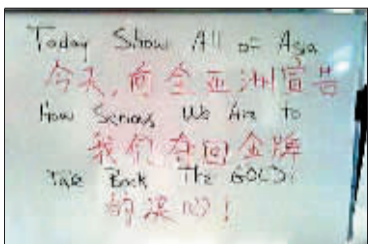 Today Show All of Asia
今天,向全亚洲宣告
How Serious We Are to
我们夺回金牌
Take Back The GOLD!
的决心!